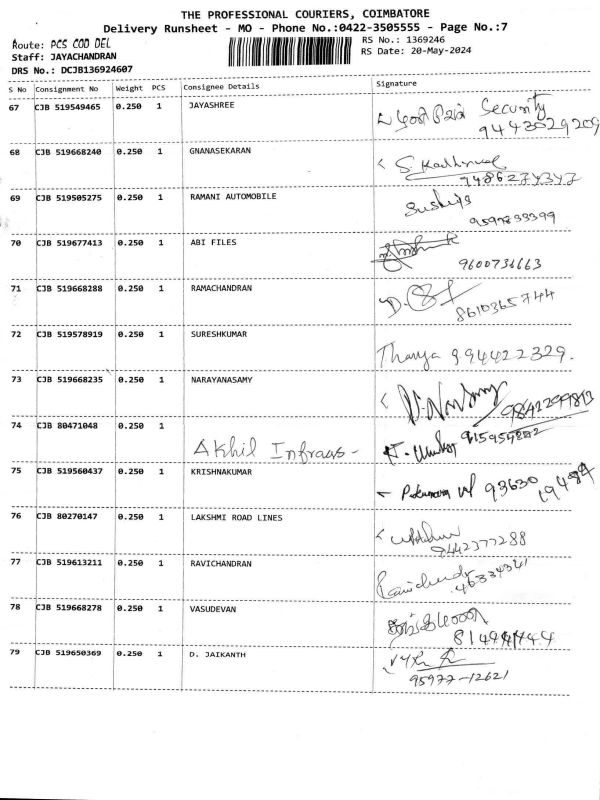 THE PROFESSIONAL COURIERS, COIMBATORE
Delivery Runsheet - MO - Phone No.:0422-3505555 - Page No.:7
Route: PCS COD DEL
RS No.: 1369246
Staff: JAYACHANDRAN
RS Date: 20-May-2024
DRS No.: DCJB136924607
S No Consignment No Weight PCS Consignee Details Signature
67 CJB 519549465 0.250 1 JAYASHREE Security
9443029209
68 CJB 519668240 0.250 1 GNANASEKARAN
9486274747
69 CJB 519505275 0.250 1 RAMANI AUTOMOBILE
9597833399
70 CJB 519677413 0.250 1 ABI FILES
9600736663
71 CJB 519668288 0.250 1 RAMACHANDRAN
8610365744
72 CJB 519578919 0.250 1 SURESHKUMAR
Thanya 994422329.
73 CJB 519668235 0.250 1 NARAYANASAMY
9842299813
74 CJB 80471048 0.250 1
Akhil Infraas -
75 CJB 519560437 0.250 1 KRISHNAKUMAR
93630 19484
76 CJB 80270147 0.250 1 LAKSHMI ROAD LINES
9442377288
77 CJB 519613211 0.250 1 RAVICHANDRAN
Ravichandr
78 CJB 519668278 0.250 1 VASUDEVAN
79 CJB 519650369 0.250 1 D. JAIKANTH
95977-12621